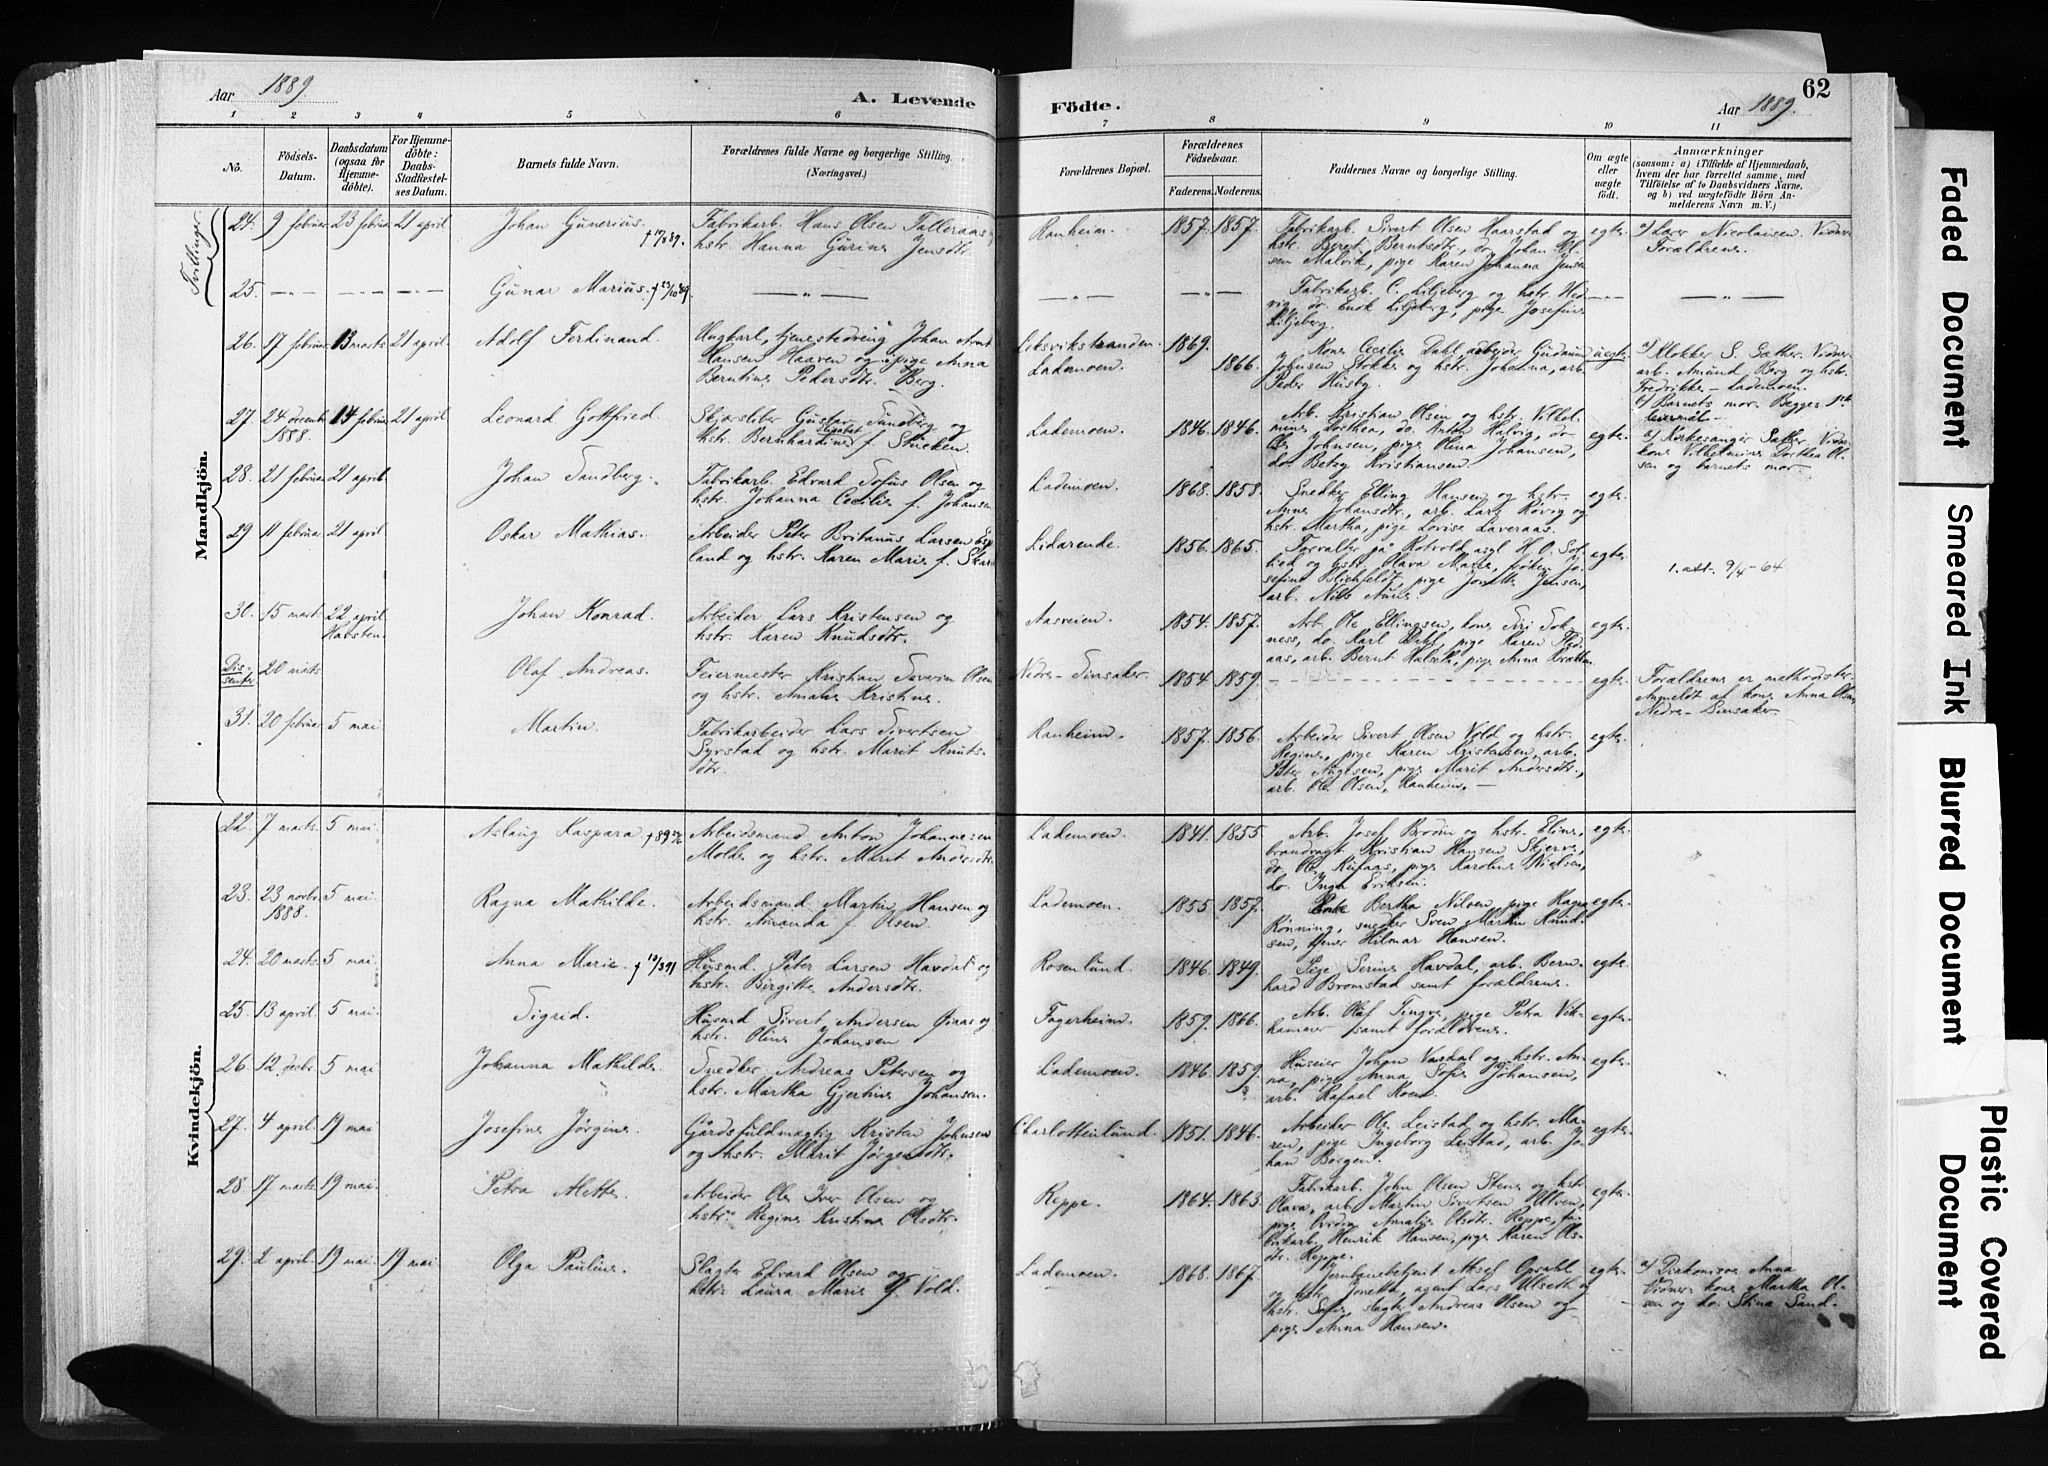 Aar 1889
A. Levende
Födte.
Aar 1889.
62
1 2 3 4 5 6 7 8 9 10 11
No.
Födsels-
Datum.
Daabsdatum
(ogsaa for
Hjemme-
döbte).
For Hjemme-
döbte:
Daabs-
Stadfæstel-
ses Datum.
Barnets fulde Navn.
Forældrenes fulde Navne og borgerlige Stilling.
(Næringsvei.)
Forældrenes Bopæl.
Forældrenes
Födselsaar.
Faderens. Moderens.
Faddernes Navne og borgerlige Stilling.
Om ægte
eller
uægte
født.
Anmærkninger
(saasom: a) i Tilfælde af Hjemmedaab,
hvem der har forrettet samme, med
Tilföielse af to Daabsvidners Navne,
og b) ved uægtefödte Börn An-
melderens Navn m. V.)
Mandkjön.
Tvillinger
24. 9 februar 23 februar 21 april Johan Gunerius. Fabrikarb. Hans Olsen
hstr. Hanna Gurine Jensdtr.
Ranheim. 1857. 1857. Fabrikarb. Sivert Olsen Haarstad og
hstr. Berit Berntsdtr., do Johan Ol-
sen Malvik, pige Karen Johanna Jensen
egte. a) Lærer Nicolaisen. Vidner
Forældrene.
25. Gunar Marius.
Fabrikarb. C. Liljeberg og hstr. Hed-
vig, do. Enok Liljeberg, pige Josefine
Liljeberg.
26. 17 februar 13 marts 21 april. Adolf Ferdinand. Ungkarl, tjenestedreng Johan Arnt
Hansen Haaven og pige Anna
Berntine Pedersdtr. Berg.
Leksvikstranden.
Lademoen.
1869.
1866.
Kone Cecilie Dahl, arbeider Gudmund
Johnsen Stokke og hstr. Johanna, arb.
Peder Husby.
uegte. a) Klokker S. Sæther. Vidner
arb. Amund Berg og hstr.
Fredrikke - Lademoen.
b) Barnets mor. Begges 1ste
leiermål.
27. 24 decemb 14 februar 21 april Leonard Gottfried. Gustav Sundberg og
1888.
hstr. Bernhardine Elisabet f. Stücken.
Lademoen. 1846. 1846. Arb. Kristian Olsen og hstr. Vilhel-
mine Dorthea, do. Anton Halvig, do
Ole Johnsen, pige Olina Johansen,
do. Betzy Kristiansen.
egte. a) Kirkesanger Sæther. Vidner
kone Vilhelmine Dorthea Ol-
sen og barnets mor.
28. 21 februar 21 april Johan Sundberg. Fabrikarb. Edvard Sofus Olsen og
hstr. Johanna Cecilie f. Johansen
Lademoen. 1868. 1858. Snedker Elling Hansen og hstr.
Anne Johansdtr., arb. Lars Røvig og
hstr. Martha, pige Lovise Laveraas.
egte.
29 11 februar 21 april Oskar Mathias. Arbeider Peter Britanus Larsen
land og hstr. Karen Marie f.
Lidarende. 1856. 1865. Forvalter på Rotvold asyl H. O. Sol-
lied og hstr. Olava Marie, frøken Jo-
sefine Blichfeldt, pige Jonetta Jensen,
arb. Nils Aune.
egte. 1. att. 9/4-64
30. 15 marts 22 april Johan Konrad. Arbeider Lars Kristensen og
hstr. Karen Knudsdtr.
Aasveien. 1854. 1857. Arb. Ole Ellingsen, kone Siri Sok-
ness, do. Karl Dahl, pige Karen
aas, arb. Bernt Halseth, pige Anna
egte.
Dis-
senter 20 marts Olaf Andreas. Feiermester Kristian Severin Olsen
og hstr. Amalie Kristine.
Nedre-Sinsaker. 1854 1859. egte. Forældrene er methodister.
Anmeldt af kone Anna Olsen,
Nedre-Sinsaker.
31. 20 februar 5 mai Martin. Fabrikarbeider Lars Sivertsen
Syrstad og hstr. Marit Knuts-
dtr.
Ranheim. 1857. 1856. Arbeider Sivert Olsen Vold og hstr.
Regine, pige Karen Kristensen, arb.
pige Marit Andersdtr.,
arb. Ole Olsen, Ranheim.
egte.
Kvindekjön.
22. 7 marts. 5 mai. Aslaug Kaspara Arbeidsmand Anton Johannesen
Molde og hstr. Marit Andersdtr.
Lademoen. 1841. 1855 Arb. Josef Broom og hstr. Eline,
brandvagt Kristian Hansen Skjerve,
do. Ole Rufaas, pige Karoline Nielsen,
do. Inga Eriksen.
egte.
23. 23 novbr. 5 mai. Ragna Mathilde. Arbeidsmand Martin Hansen og
1888.
hstr. Amanda f. Olsen.
Lademoen. 1855 1857. Bertha Nilsen, pige Ragna
Rönning, snedker Sven Martin Knud-
sen, tjener Hilmar Hansen.
egte.
24. 20 marts 5 mai. Anna Marie. Husmd. Peter Larsen Havdal og
hstr. Birgitte Andersdtr.
Rosenlund. 1846. 1849. Pige Serine Havdal, arb. Bern-
hard Bromstad samt forældrene.
egte.
25. 13 april. 5 mai. Sigrid. Husmd Sivert Andersen Øiaas og
hstr. Oline Johansen
Fagerheim. 1859. 1866. Arb. Olaf Tingve, pige Petra Vik-
hammer samt forældrene.
egte.
26. 12. decbr. 5 mai Johanna Mathilde. Snedker Andreas Petersen og
hstr. Martha Gjertine Johansen.
Lademoen. 1846. 1859. Huseier Johan Vardal og hstr. An-
na, pige Anna Sofie Johansen,
arb. Rafael Roen.
egte.
27. 4 april. 19 mai Josefine Jørgine. Gårdsfuldmægtig Kristen Johnsen
og hstr. Marit Jørgensdtr.
Charlottenlund. 1851. 1846. Arbeider Ole Leistad og hstr. Ma-
ren, pige Ingeborg Leistad, arb. Jo-
han Borgen.
egte.
28. 17. marts. 19 mai. Petra Alette. Arbeider Ole Iver Olsen og
hstr. Regine Kristine Olsdtr.
Reppe. 1864. 1863. Fabrikarb. John Olsen Stene og hstr.
Olava, arb. Martin Sivertsen Ulven,
pige Ovidia Amalie Olsdtr. Reppe, fa-
brikarb. Henrik Hansen, pige Karen Ols-
dtr. Reppe.
egte.
29. 2 april. 19 mai. 19 mai Olga Pauline. Slagter Edvard Olsen og
hstr. Laura Marie f. Vold.
Lademoen. 1868. 1867. Jernbanebetjent Aksel Opsahl
og hstr. Jonetta, agent Lars Ulseth og
hstr. Sofie, slagter Andreas Olsen og
pige Anna Hansen.
egte. a) Diakonisse Anna
Vidner: kone Martha Ol-
sen og do. Stina Sand-
Faded Document
Smeared Ink
Blurred Document
Plastic Covered
Document